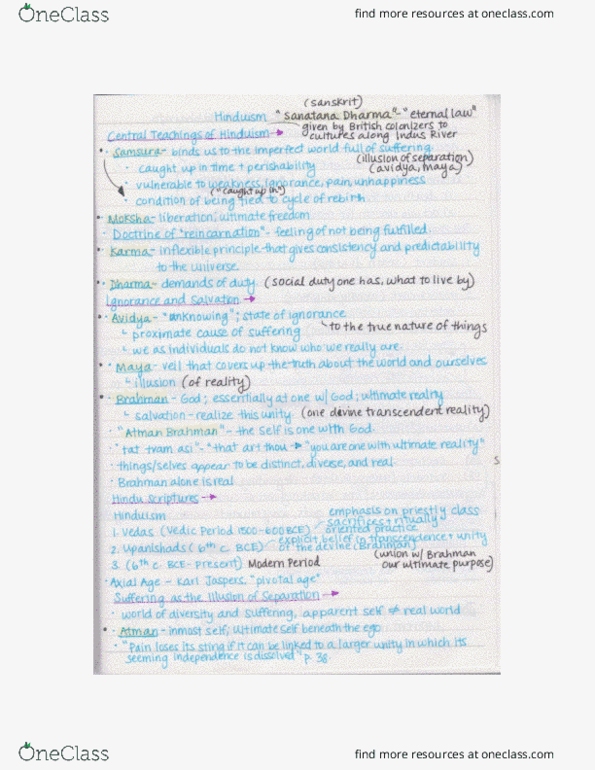 OneClass
find more resources at oneclass.com
(sanskrit)
Hinduism "Sanatana Dharma" - "eternal law"
given by British colonizers to
cultures along Indus River
Central Teachings of Hinduism →
• Samsara - binds us to the imperfect world full of suffering.
(illusion of separation)
(avidya, maya)
· caught up in time + perishability
· vulnerable to weakness, ignorance, pain, unhappiness
("caught up in")
· condition of being tied to cycle of rebirth
• Moksha - liberation; ultimate freedom
· Doctrine of "reincarnation" - feeling of not being fulfilled.
• Karma - inflexible principle that gives consistency and predictability
to the universe.
• Dharma - demands of duty (social duty one has, what to live by)
Ignorance and Salvation →
• Avidya - "unknowing"; state of ignorance
└ to the true nature of things
└ proximate cause of suffering
└ we as individuals do not know who we really are.
• Maya - veil that covers up the truth about the world and ourselves
└ illusion (of reality)
• Brahman - God; essentially at one w/ God; ultimate reality
└ salvation - realize this unity (one devine transcendent reality)
· "Atman Brahman" - the self is one with God
· "tat tvam asi" - "that art thou → "you are one with ultimate reality"
· things/selves appear to be distinct, diverse, and real.
· Brahman alone is real
Hindu Scriptures →
Hinduism
emphasis on priestly class
sacrifices + ritually
oriented practice
1. Vedas (Vedic Period 1500-600 BCE)
explicit belief in transcendence + unity
of the devine (Brahman)
2. Upanishads (6th c. BCE)
(union w/ Brahman
our ultimate purpose)
3. (6th c. BCE - present) Modern Period
· Axial Age - Karl Jaspers, "pivotal age"
Suffering as the Illusion of Separation →
· world of diversity and suffering, apparent self ≠ real world
• Atman - inmost self; ultimate self beneath the ego
· "Pain loses its sting if it can be linked to a larger unity in which its
seeming independence is dissolved" p. 38.
s
OneClass
find more resources at oneclass.com